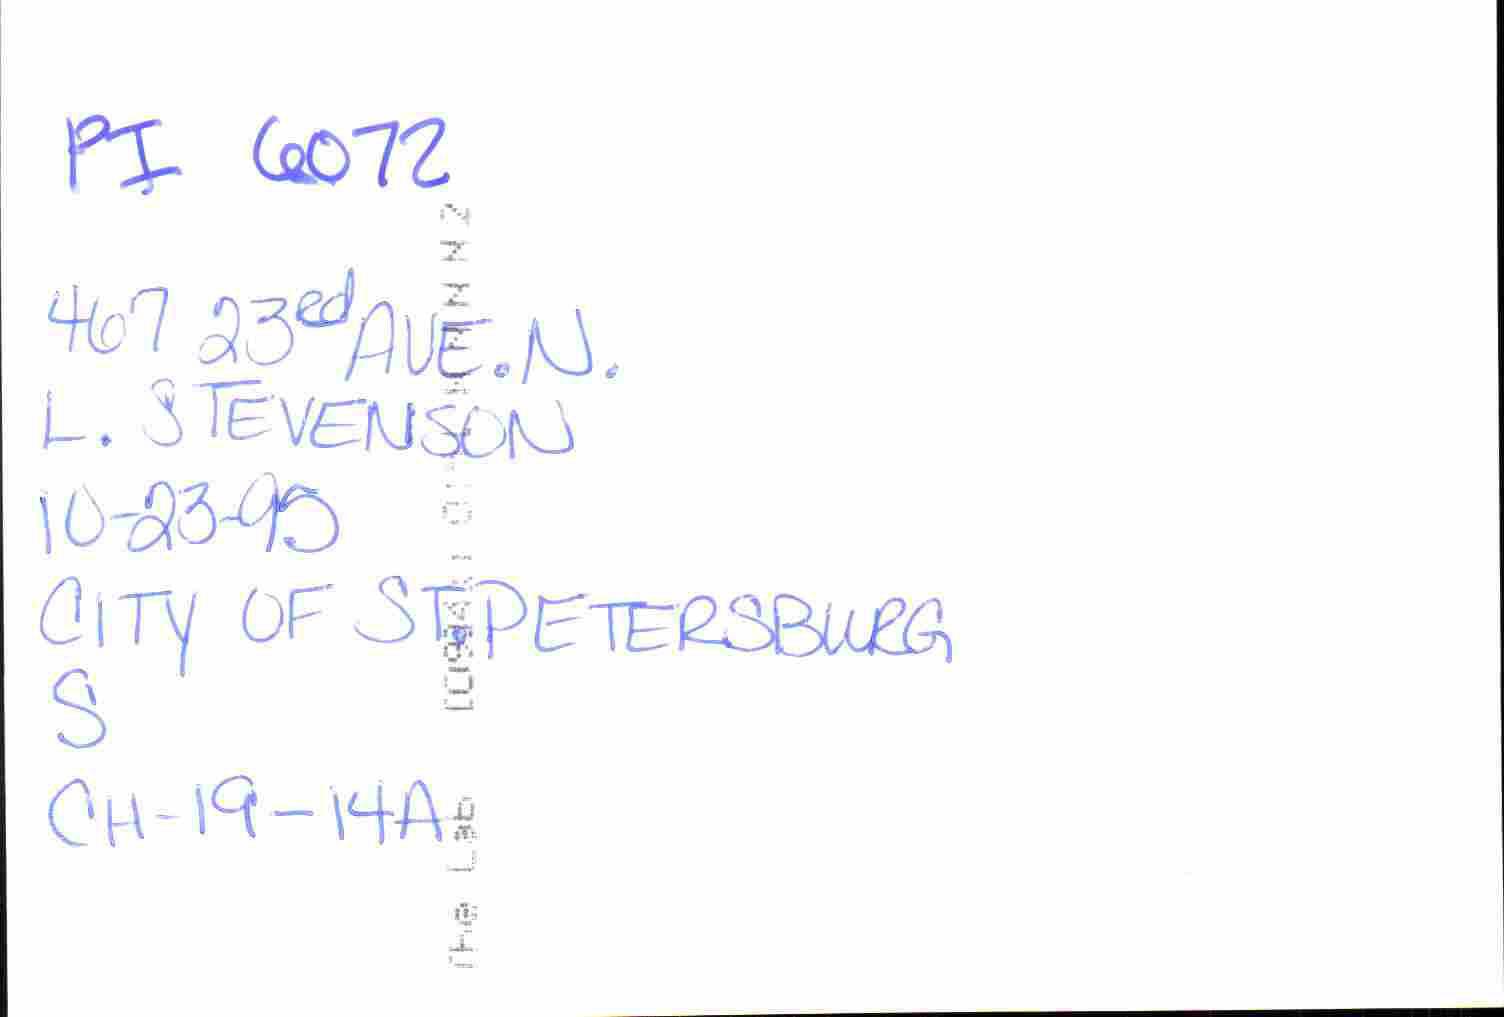 PI 6072
467 23ed AVE. N.
L. STEVENSON
10-23-95
CITY OF ST. PETERSBURG
S
CH-19-14A